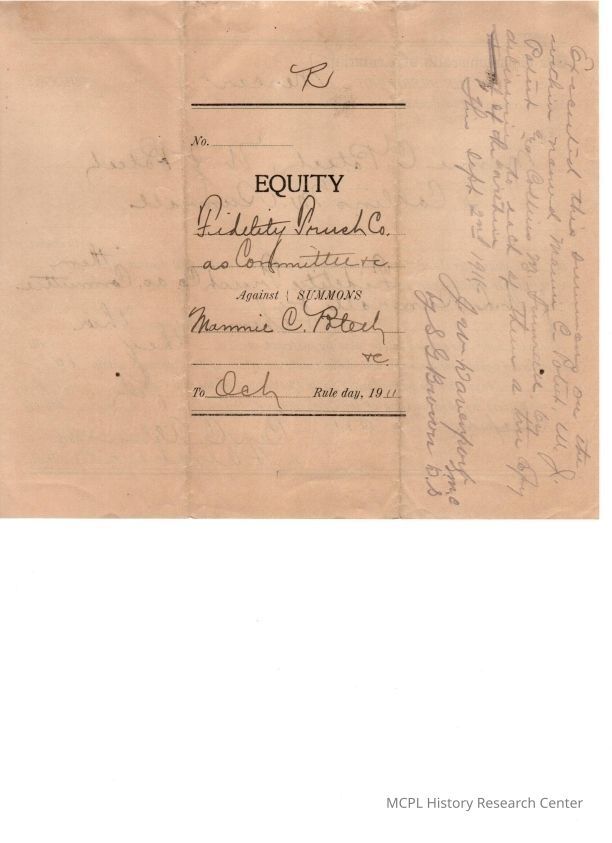 R
No.
EQUITY
Fidelity Trust Co.
as Committee &c.
Against { SUMMONS
Mammie C. Poteet
&c.
To Oct Rule day, 1911
Executed this summons on the
within named Mamie C. Poteet, W. J.
Poteet Geo Collins M. by
delivering to each of them a true copy
of the within
This Sept 2nd 191
J. W. Davenport S.M.C
By S. G. D.S
MCPL History Research Center